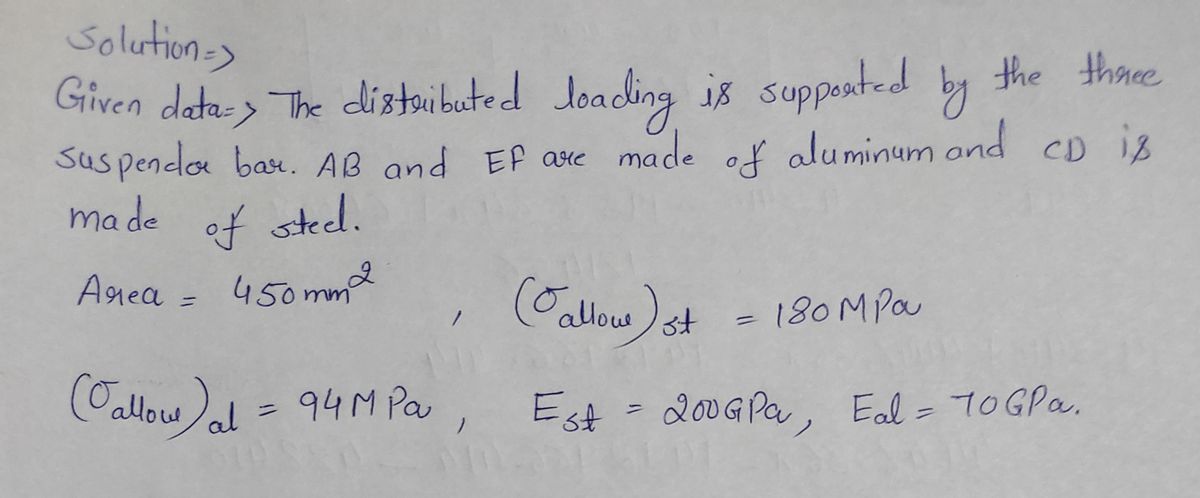 Solution=>
Given data=> The distributed loading is supported by the three
suspendor bar. AB and EF are made of aluminum and CD is
made of steel.
Area = 450 mm² , (σallow)st = 180 MPa
(σallow)al = 94 MPa , Est = 200 GPa, Eal = 70 GPa.